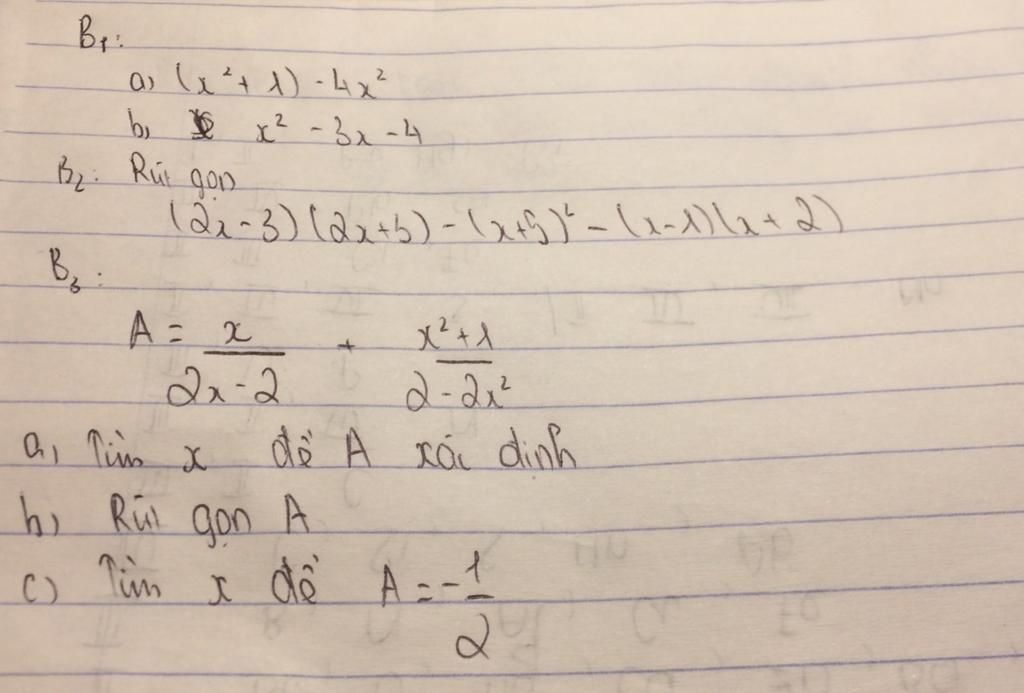 B1:
a) (x² + 1) - 4x²
b) x² - 3x - 4
B2: Rút gọn
(2x - 3)(2x + 3) - (x + 5)² - (x - 1)(x + 2)
B3:
A = x/(2x - 2) + (x² + 1)/(2 - 2x²)
a) Tìm x để A xác định
b) Rút gọn A
c) Tìm x để A = -1/2